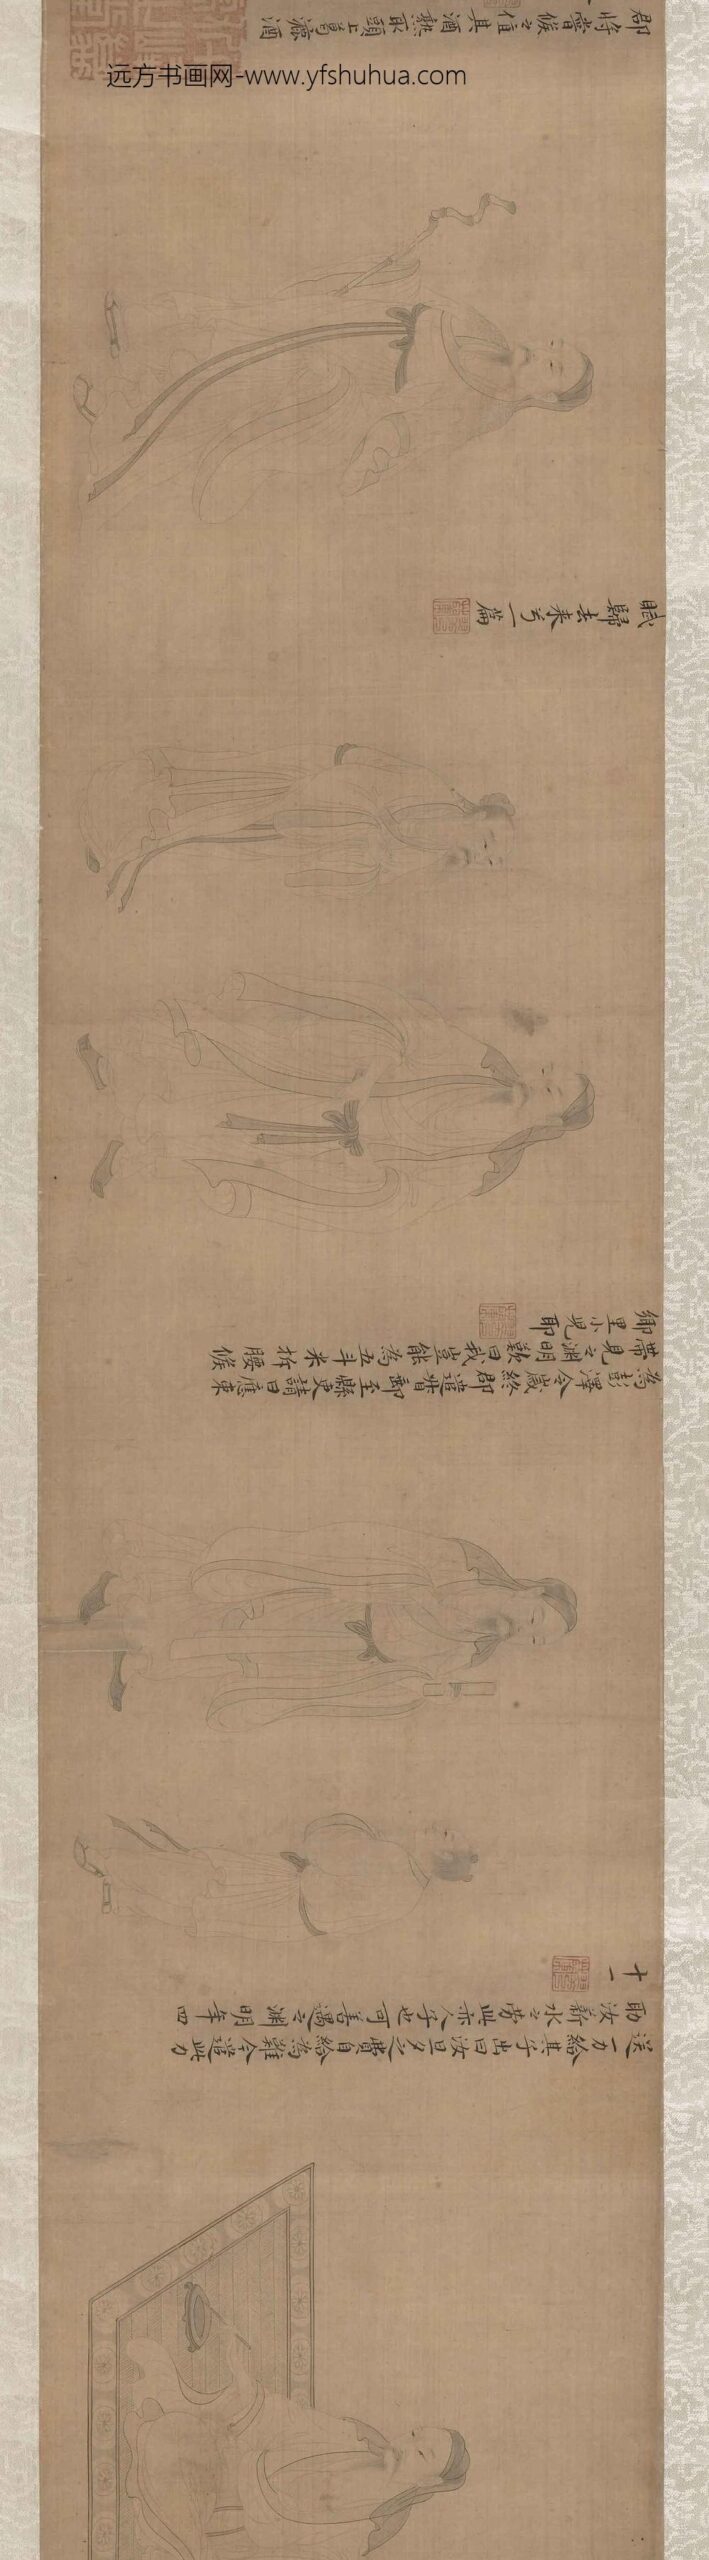 远方书画网-www.yfshuhua.com
送一力給其子書曰汝旦夕之費自給為難今遣此力
助汝薪水之勞此亦人子也可善遇之淵明年四
十一
為彭澤令歲終郡遣督郵至縣吏請曰應束
帶見之淵明歎曰我豈能為五斗米折腰候
鄉里小兒耶
賦歸去来兮一篇
郡將嘗候之值其酒熟取頭上葛漉酒